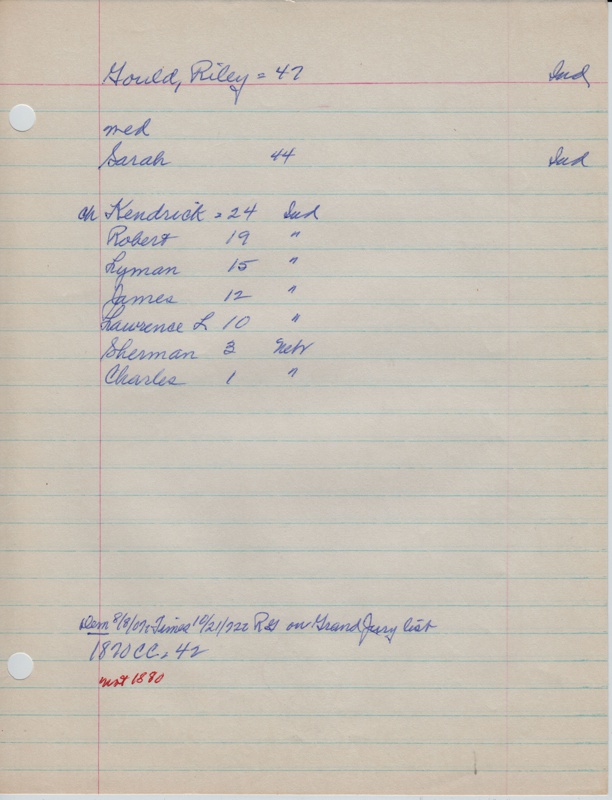 Gould, Riley = 47 Ind
med
Sarah 44 Ind
ch Kendrick = 24 Ind
Robert 19 "
Lyman 15 "
James 12 "
Lawrence L 10 "
Sherman 3 Nebr
Charles 1 "
Dem Times 10/21/722 RG on Grand Jury list
1870 CC = 42
not 1880